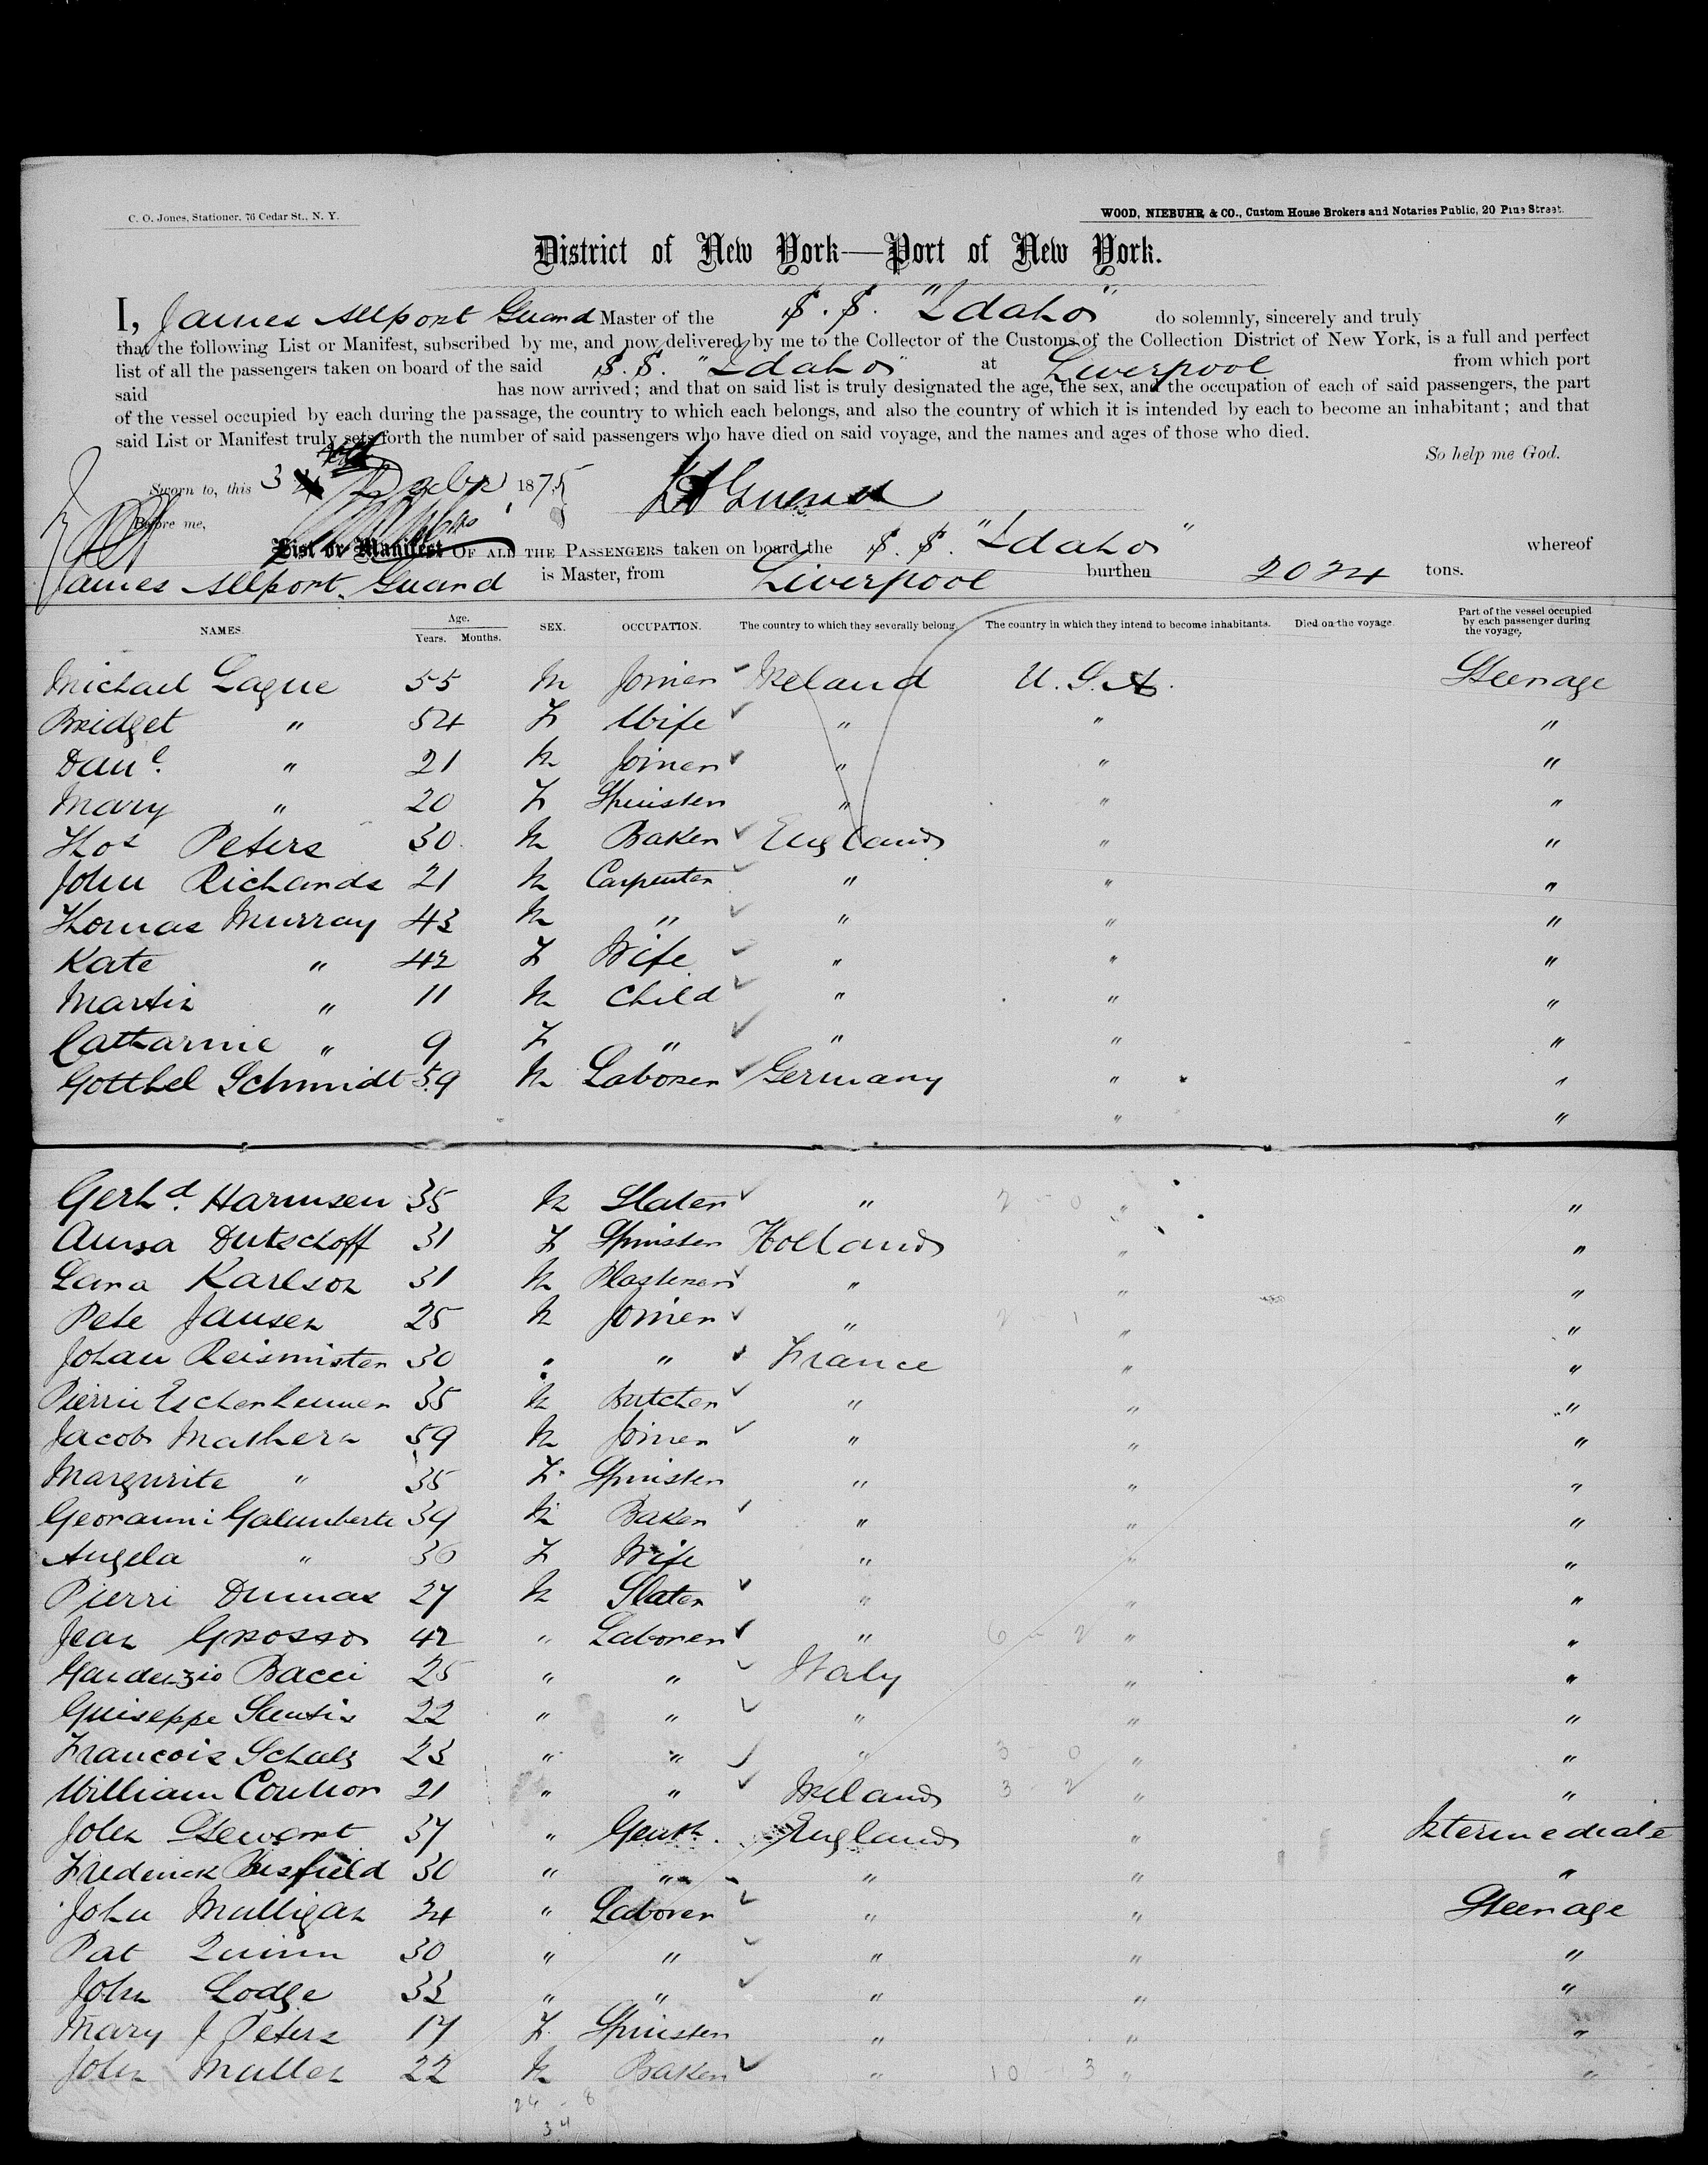 C. O. Jones, Stationer, 76 Cedar St., N. Y.
WOOD, NIEBUHR, & CO., Custom House Brokers and Notaries Public, 20 Pine Street.
District of New York—Port of New York.
I, James Allport Guard Master of the S. S. "Idaho" do solemnly, sincerely and truly
that the following List or Manifest, subscribed by me, and now delivered by me to the Collector of the Customs of the Collection District of New York, is a full and perfect
list of all the passengers taken on board of the said S. S. "Idaho" at Liverpool from which port
said has now arrived; and that on said list is truly designated the age, the sex, and the occupation of each of said passengers, the part
of the vessel occupied by each during the passage, the country to which each belongs, and also the country of which it is intended by each to become an inhabitant; and that
said List or Manifest truly sets forth the number of said passengers who have died on said voyage, and the names and ages of those who died.
So help me God.
Sworn to, this 3 1875 Guard
Before me,
List or Manifest OF ALL THE PASSENGERS taken on board the S. S. "Idaho" whereof
James Allport Guard is Master, from Liverpool burthen 2024 tons.
NAMES. Age. Years. Months. SEX. OCCUPATION. The country to which they severally belong. The country in which they intend to become inhabitants. Died on the voyage. Part of the vessel occupied by each passenger during the voyage.
Michael Lague 55 M Joiner Ireland U. S. A. Steerage
Bridget " 54 F Wife " " "
Danl. " 21 M Joiner " " "
Mary " 20 F Spinster " " "
Thos Peters 30 M Baker England " "
John Richards 21 M Carpenter " " "
Thomas Murray 43 M " " " "
Kate " 42 F Wife " " "
Martin " 11 M Child " " "
Catharine " 9 F " " " "
Gotthel Schmidt 59 M Laborer Germany " "
" "
Gerhd. Harmsen 35 M Slater " " "
Anna Dutschoff 31 F Spinster Holland " "
Lara Karlson 31 M Plasterer " " "
Pete Jansen 25 M Joiner " " "
Johan Reisminster 30 " " France " "
Pierri 35 M Butcher " " "
Jacob Mathern 59 M Joiner " " "
Margurite " 35 F Spinster " " "
Georanni Galumberte 39 M Baker " " "
Angela " 36 F Wife " " "
Pierri Dumas 27 M Slater " " "
Jean Grosso 42 " Laborer " 6 - 2 " "
Gaudenzio Bacci 25 " " Italy " "
Guiseppe 22 " " " " "
Francois Schulz 23 " " " 3 - 0 " "
William 21 " " Ireland 3 - 2 " "
John Stewart 37 " Gent. England " Intermediate
Frederick 30 " " " " "
John Mulligan 24 " Laborer " " Steerage
Pat Quinn 30 " " " " "
John Lodge 33 " " " " "
Mary J Peters 17 F Spinster " " "
John Mullen 22 M Baker " 10 - 3 " "
26 - 8
34